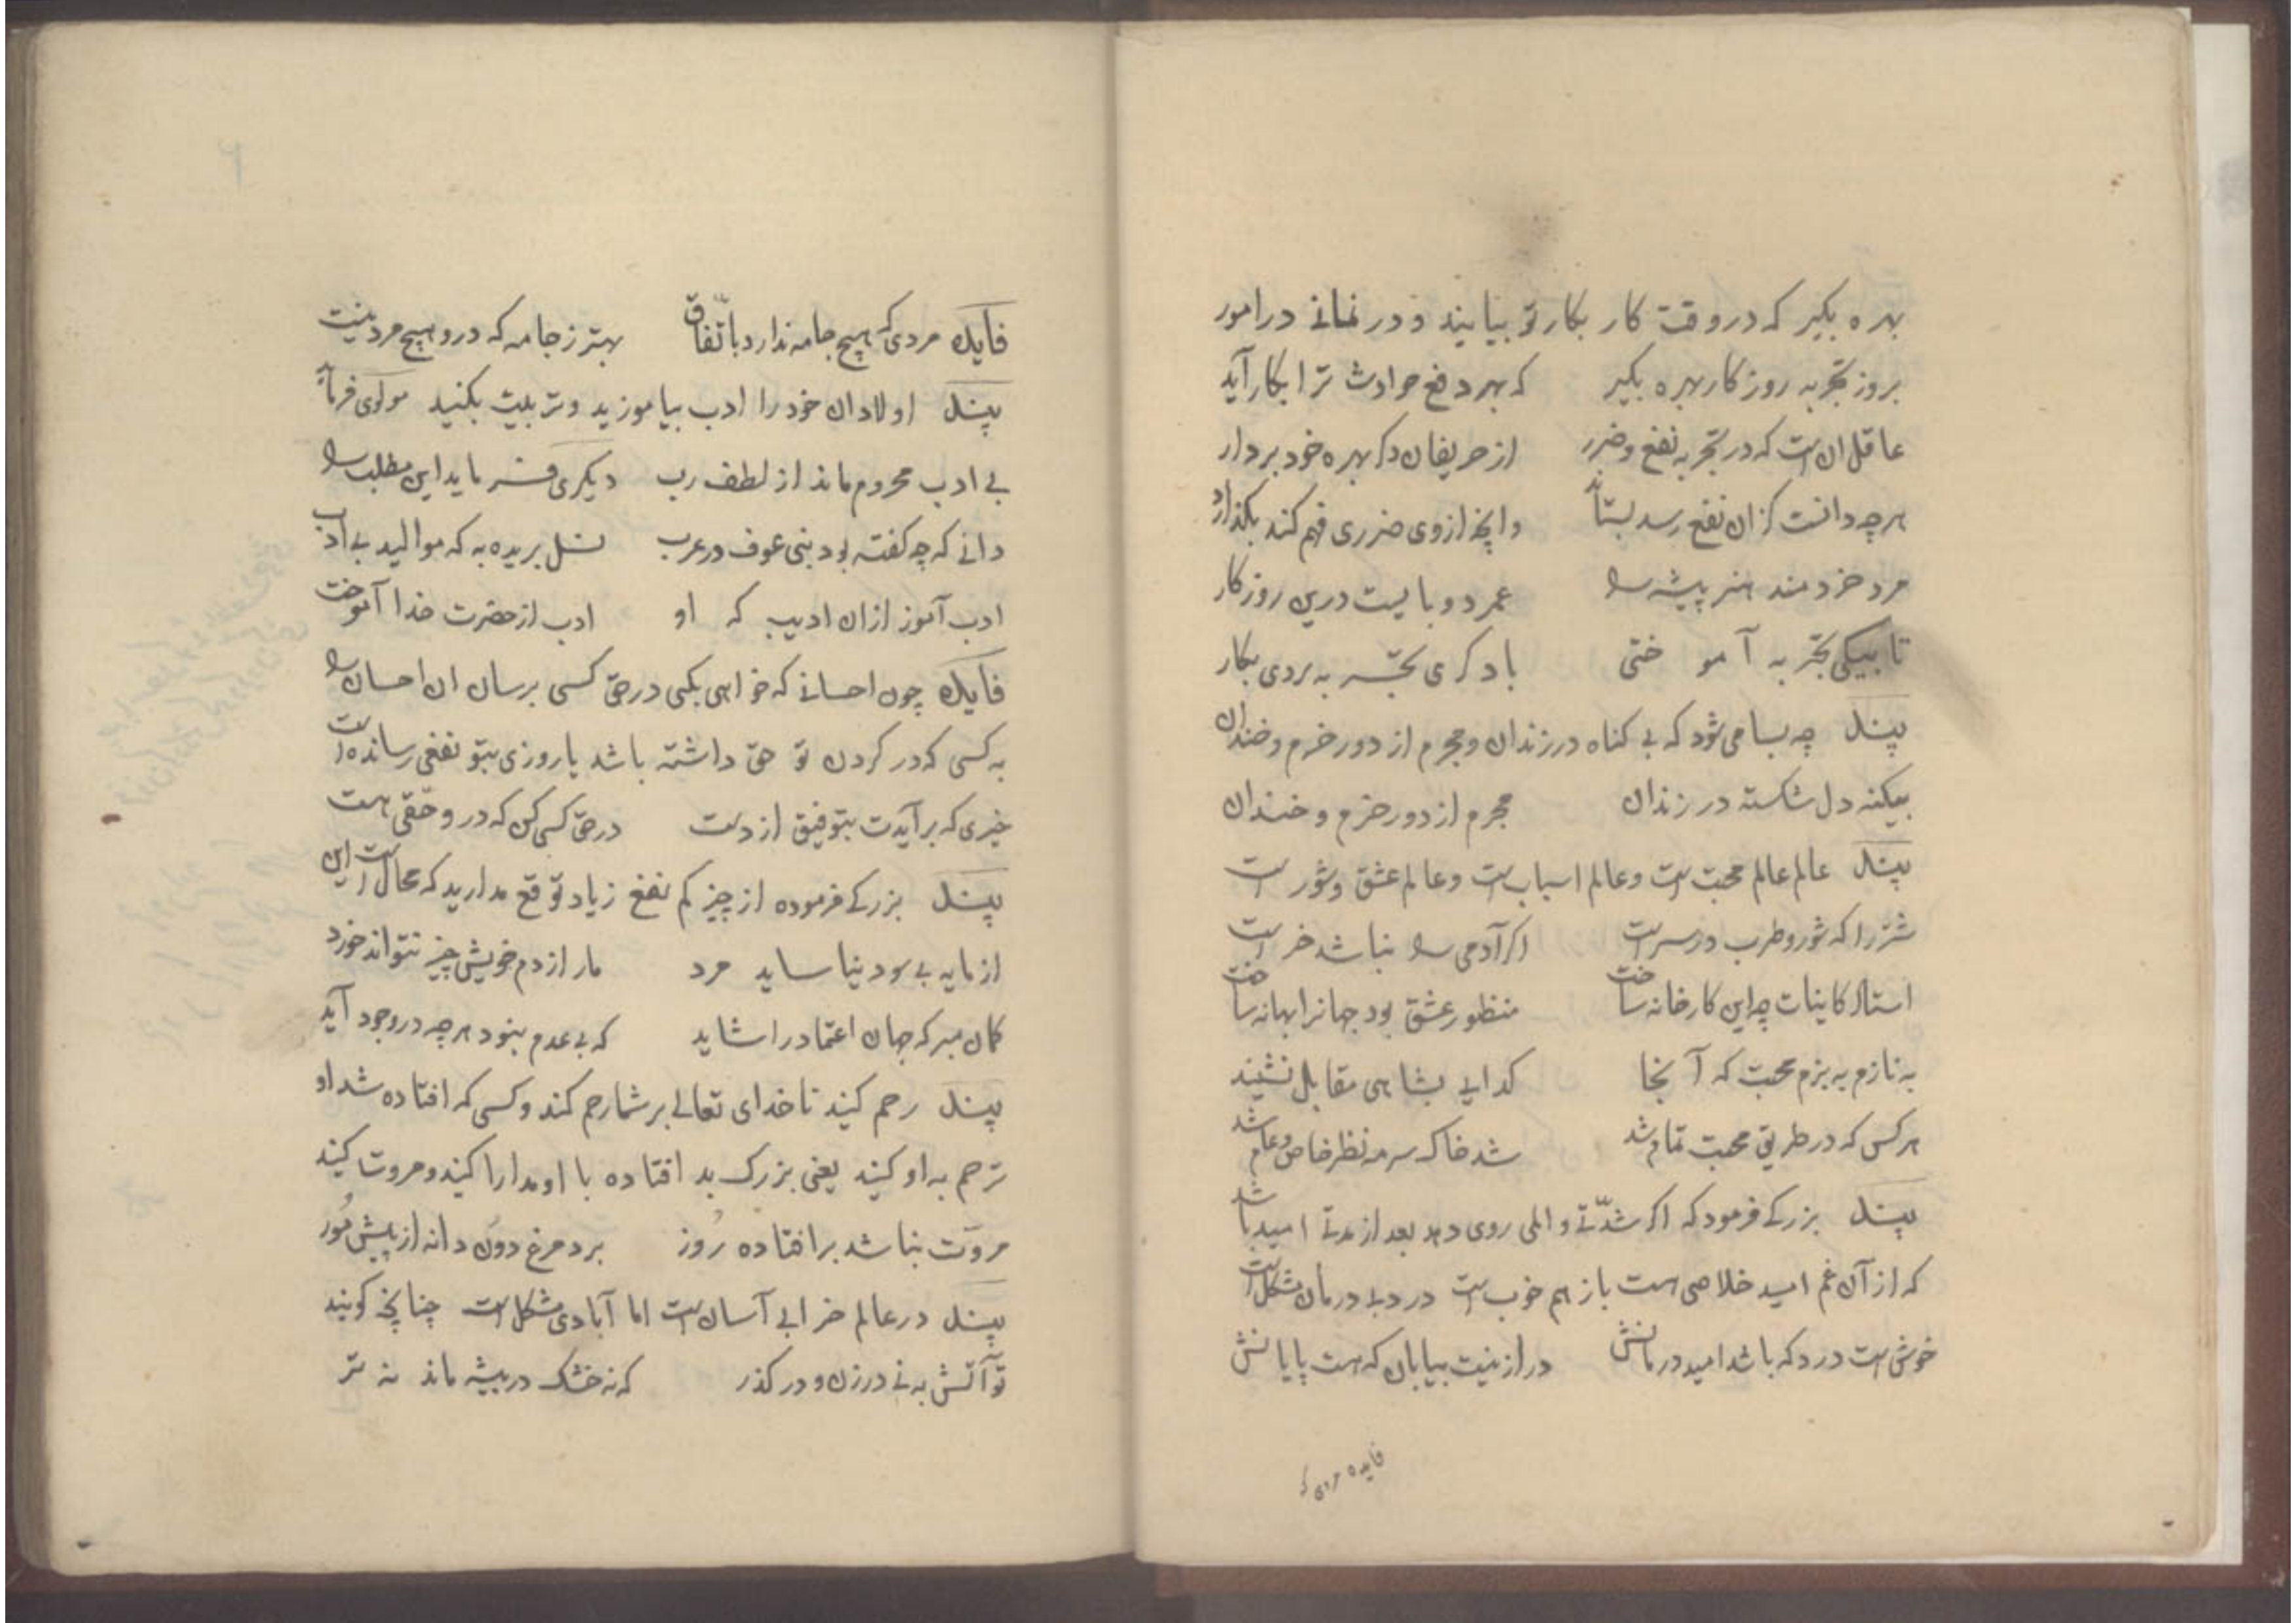 بهره بگیر که در وقت کار بکار تو بیایند و در نمانی در امور
بروز تجربه روزکار بهره بگیر که بهر دفع حوادث ترا بکار آید
عاقل ان است که در تجربه نفع و ضرر از حریفان دکر بهره خود بردارد
هرچه دانست کزان نفع رسد بستاند وانچه از وی ضرری فهم کند بگذارد
مرد خردمند هنر پیشه را عمر دو بایست درین روزکار
تا بیکی تجربه آموختی با دکری تجربه بردی بکار
پند چه بسا می شود که بی کناه در زندان و مجرم از دور خرم و خندان
بیکنه دل شکسته در زندان مجرم از دور خرم و خندان
پند عالم عالم محبت است و عالم اسباب است و عالم عشق و شور است
شتر را که شور و طرب در سر است اکر آدمی را نباشد خر است
استاد کاینات چه این کارخانه ساخت منظور عشق بود جهانرا بهانه ساخت
به نازم به بزم محبت که آنجا کدایی بشاهی مقابل نشیند
هرکس که در طریق محبت تمام شد شد خاک سرمه نظر خاص و عام شد
پند بزرکی فرمود که اکر شدّتی و المی روی دهد بعد از مدتی امید باشد
که از آن غم امید خلاصی هست باز هم خوب است درد بی درمان مشکل است
خوش است درد که باشد امید درمانش دراز نیست بیابان که هست پایانش
فایده مردی که
فایده مردی که هیچ جامه ندارد باتّفاق بهتر ز جامه که درو هیچ مرد نیست
پند اولادان خود را ادب بیاموزید و تربیت بکنید مولوی فرماید
بی ادب محروم ماند از لطف رب دیکری فرماید این مطلب را
دانی که چه کفته بود بنی عوف در عرب نسل بریده به که موالید بی ادب
ادب آموز ازان ادیب که او ادب از حضرت خدا آموخت
فایده چون احسانی که خواهی بکنی در حق کسی برسان ان احسان را
به کسی که در کردن تو حق داشته باشد یا روزی بتو نفعی رسانده است
خیری که برآیدت بتوفیق از دست در حق کسی کن که درو حقی هست
پند بزرکی فرموده از چیز کم نفع زیاد توقع مدارید که محال است این
از مایه بی سود نیاساید مرد مار از دم خویش چیز نتواند خورد
کمان مبر که جهان اعتماد را شاید که بی عدم نبود هرچه در وجود آید
پند رحم کنید تا خدای تعالی بر شما رحم کند و کسی که افتاده شد او
ترحم به او کنید یعنی بزرک بد افتاده با او مدارا کنید و مروت کنید
مروّت نباشد بر افتاده زور برد مرغ دون دانه از پیش مور
پند در عالم خرابی آسان است اما آبادی مشکل است چنانچه کویند
تو آتش به نی در زن و درکذر که نه خشک در بیشه ماند نه تر